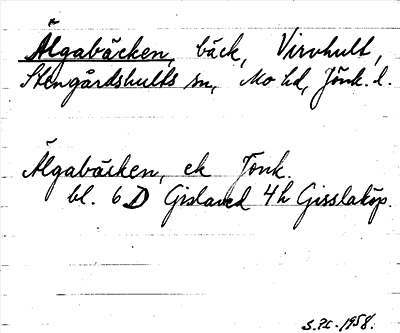 Älgabäcken, bäck, Virvhult,
Stengårdshults sn, Mo hd, Jönk. l.
Älgabäcken, ek Jönk.
bl. 6D Gislaved 4h Gisslaköp.
1958.